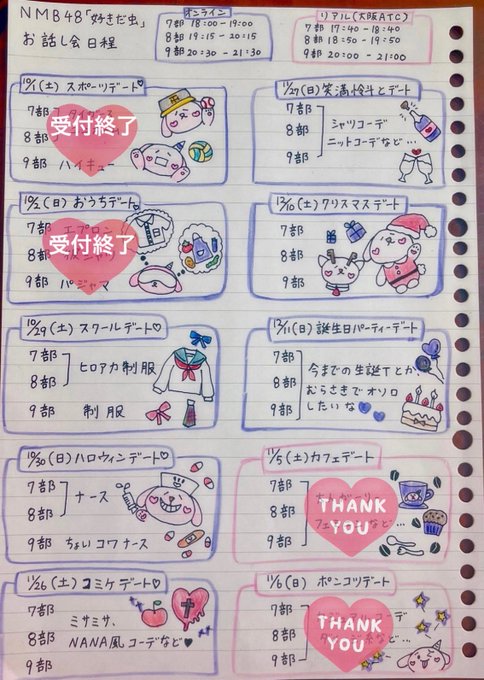 NMB48「好きだ虫」
お話し会日程
オンライン
7部 18:00-19:00
8部 19:15-20:15
9部 20:30-21:30
リアル(大阪ATC)
7部 17:40-18:40
8部 18:50-19:50
9部 20:00-21:00
10/1(土)スポーツデート♡
7部
受付終了
8部
9部 ハイキュー
10/2(日)おうちデート
7部 エプロン
受付終了
8部
9部 パジャマ
10/29(土)スクールデート♡
7部
8部
ヒロアカ制服
9部 制服
10/30(日)ハロウィンデート♡
7部
8部
ナース
9部 ちょいコワナース
11/26(土)コミケデート♡
7部
8部
9部
ミサミサ、
NANA風コーデなど♥
11/27(日)笑満怜斗とデート
7部
8部
9部
シャツコーデ
ニットコーデなど…
12/10(土)クリスマスデート
7部
8部
9部
12/11(日)誕生日パーティーデート
7部
8部
9部
今までの生誕Tとか、
むらさきでオソロ
したいな
11/5(土)カフェデート
7部
8部
9部
THANK
YOU
など…
11/6(日)ポンコツデート
7部
8部
9部
コーデ
THANK
YOU
など…